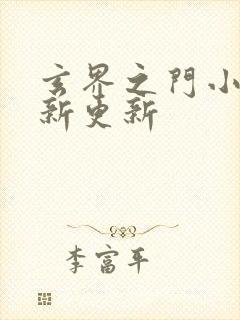 玄界之門小
新更新
李富平